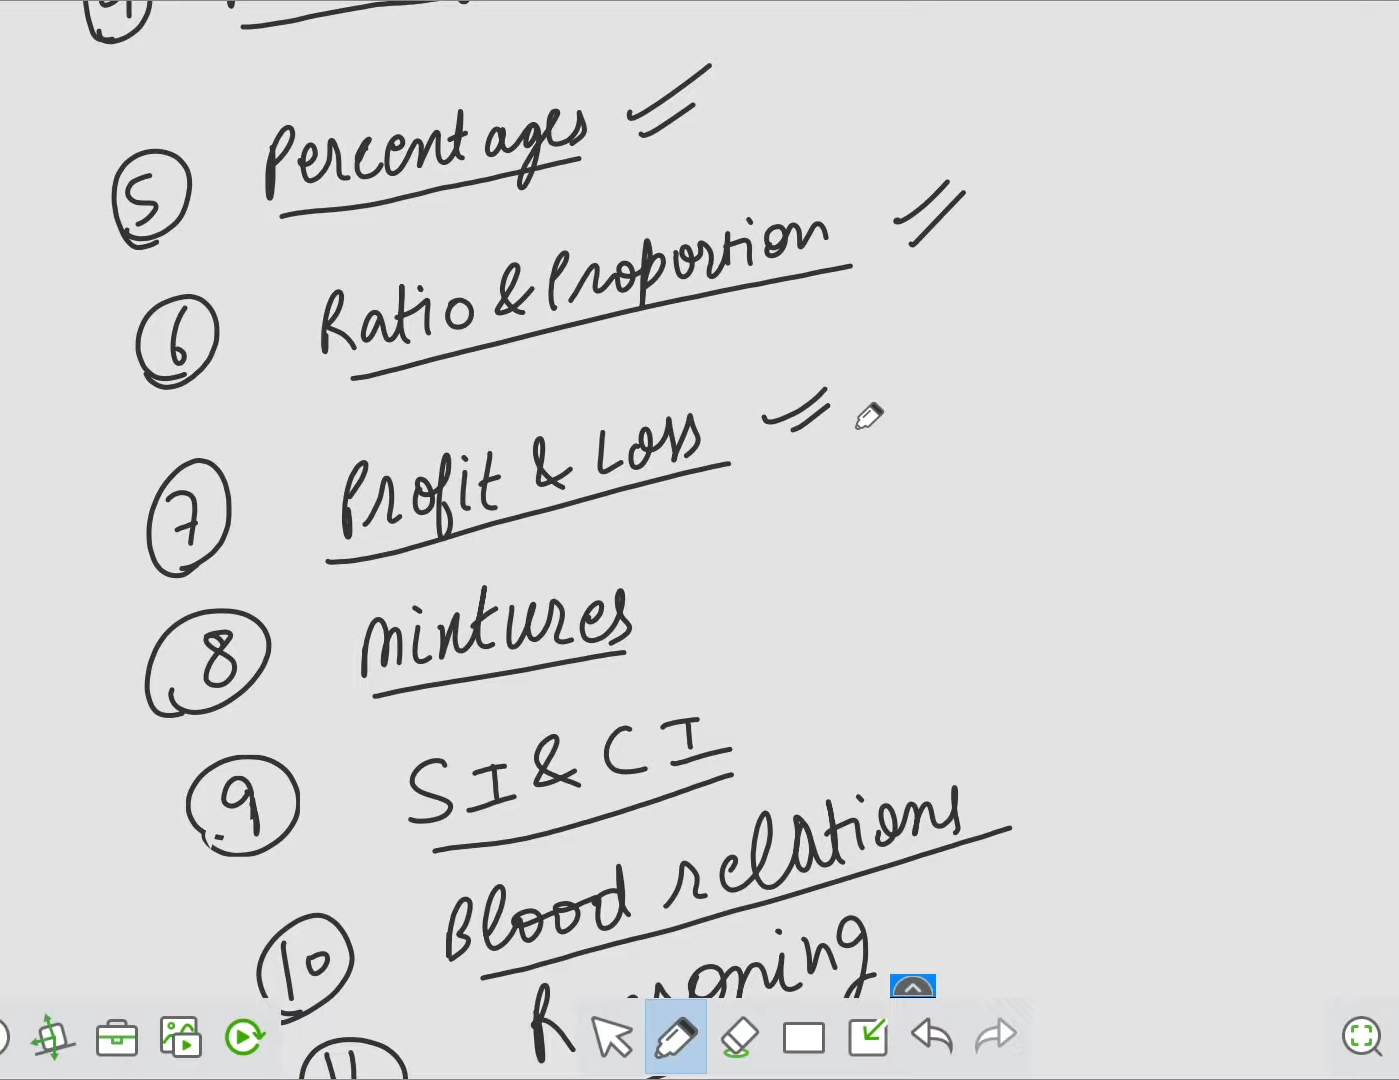 5 Percentages
6 Ratio & Proportion
7 Profit & Loss
8 Mixtures
9 SI & CI
10 Blood relations
11